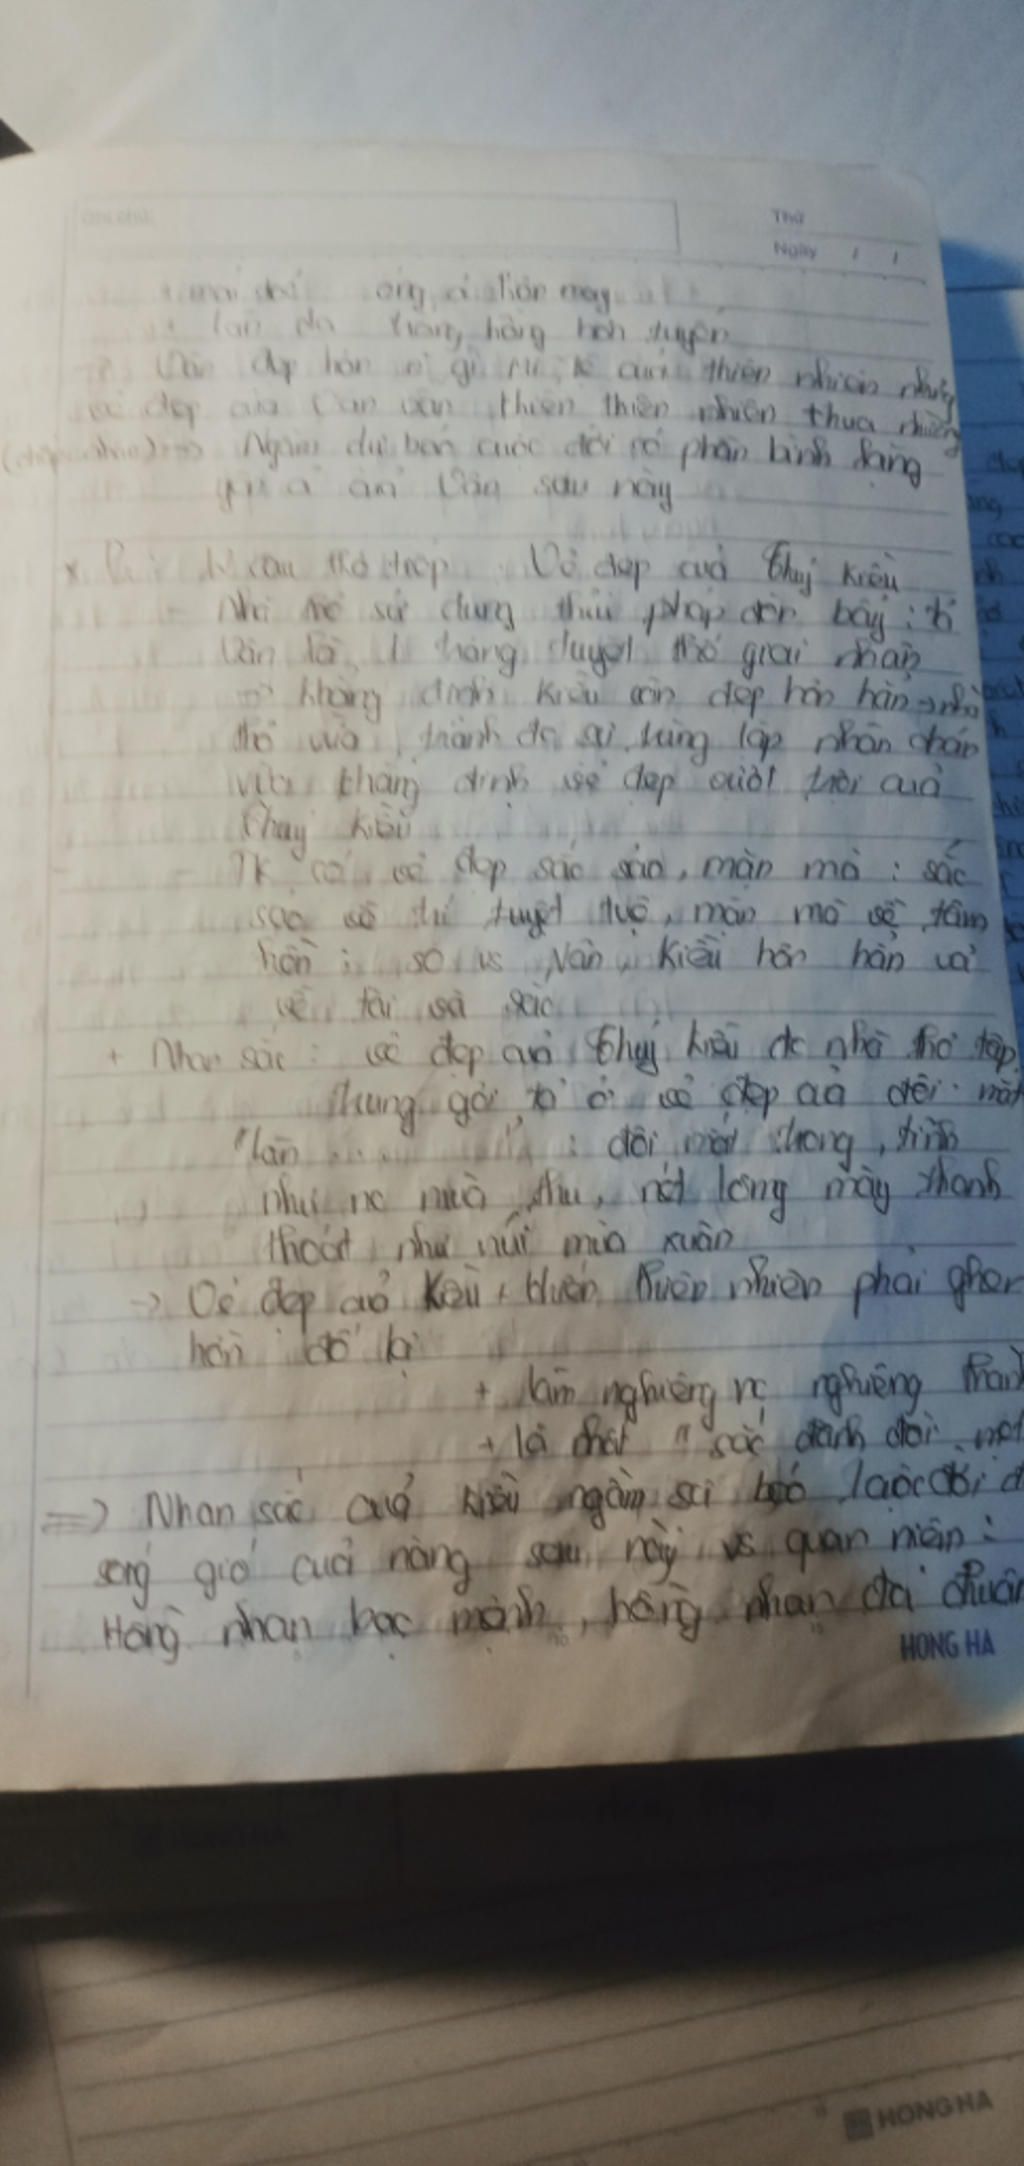 Ghi chú:
Thứ
Ngày / /
óng ả hơn mây
làn da trắng hồng hơn tuyết
Vân đẹp hơn gì thiên nhiên nhưng
vẻ đẹp của Vân thiên nhiên thua nhường
=> Ngầm dự báo cuộc đời số phận bình lặng
Vân sau này
* câu thơ tiếp: Vẻ đẹp của Thuý Kiều
- Nhà thơ sử dụng thủ pháp đòn bẩy: tả
Vân là 1 trang tuyệt thế giai nhân
=> khẳng định Kiều còn đẹp hơn hẳn -> nhà
thơ vừa tránh đc sự trùng lặp nhàm chán
vừa khẳng định vẻ đẹp vượt trội của
Thuý Kiều
- TK có vẻ đẹp sắc sảo, mặn mà: sắc
sảo về trí tuyệt tuệ, mặn mà về tâm
hồn; so vs Vân, Kiều hơn hẳn cả
về tài và sắc
+ Nhan sắc: vẻ đẹp của Thuý Kiều đc nhà thơ tập
trung gợi tả ở vẻ đẹp của đôi mắt
"làn ......": đôi mắt trong, tĩnh
như nc mùa thu, nét lông mày thanh
thoát như núi mùa xuân
-> Vẻ đẹp của Kiều khiến thiên nhiên phải ghen
hờn đố kị
+ làm nghiêng nc nghiêng thành
+ là nhất "sắc đành đòi một
=> Nhan sắc của Kiều ngầm dự báo cuộc đời
sóng gió của nàng sau này vs quan niệm:
Hồng nhan bạc mệnh, hồng nhan đa chuân
HONG HA
HONG HA